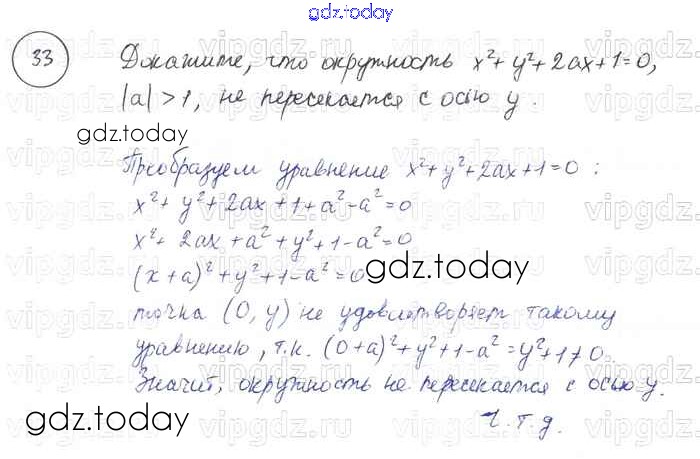 gdz.today
33 Докажите, что окружность x²+y²+2ax+1=0,
|a|>1, не пересекается с осью y.
gdz.today
Преобразуем уравнение x²+y²+2ax+1=0:
x²+y²+2ax+1+a²-a²=0
x²+2ax+a²+y²+1-a²=0
(x+a)²+y²+1-a²=0 gdz.today
точка (0,y) не удовлетворяет такому
уравнению, т.к. (0+a)²+y²+1-a²=y²+1≠0
Значит, окружность не пересекается с осью y.
gdz.today ч.т.д.